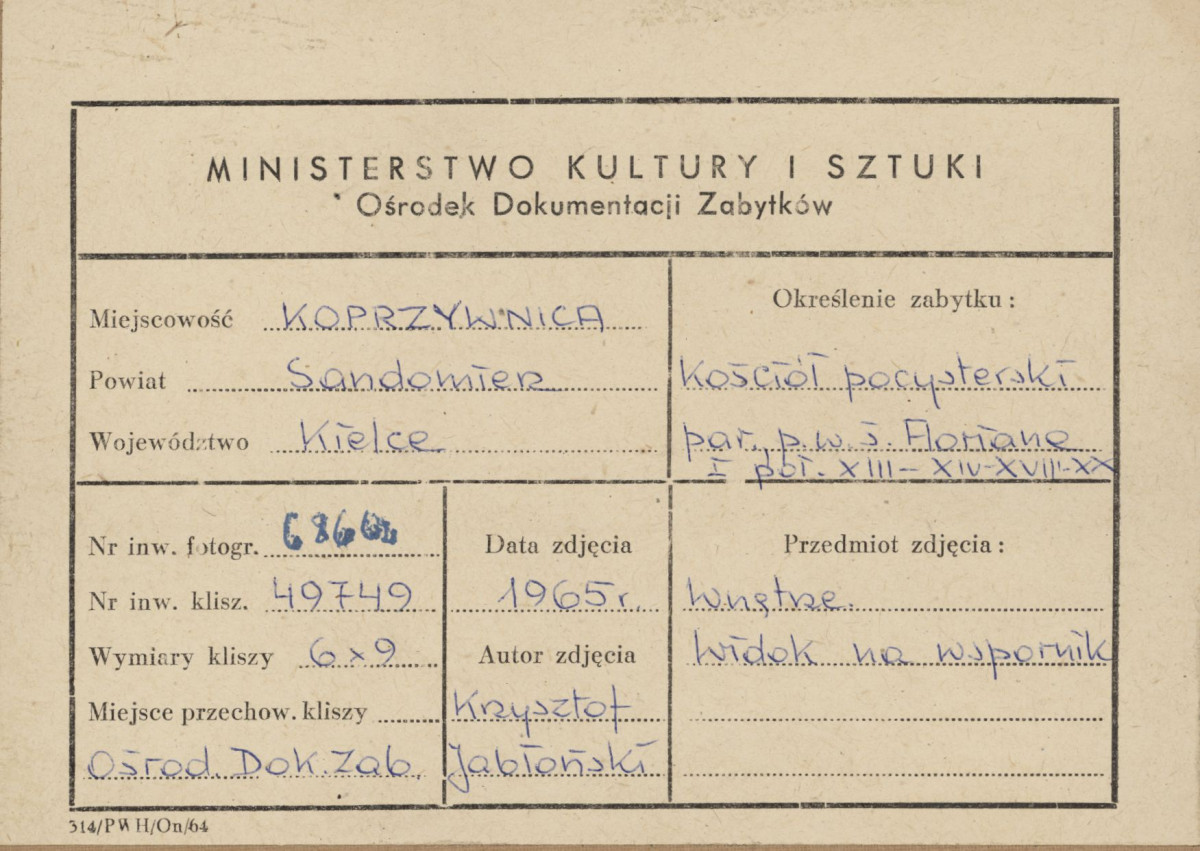 MINISTERSTWO KULTURY I SZTUKI
Ośrodek Dokumentacji Zabytków
Miejscowość KOPRZYWNICA
Powiat Sandomierz
Województwo Kielce
Określenie zabytku:
Kościół pocysterski
par., p.w. ś. Floriana
I poł. XIII-XIV-XVIII-XX
Nr inw. fotogr.
Nr inw. klisz. 49749
Wymiary kliszy 6x9
Miejsce przechow. kliszy
Ośrod. Dok. Zab.
Data zdjęcia
1965 r.
Autor zdjęcia
Krzysztof
Jabłoński
Przedmiot zdjęcia:
Wnętrze.
Widok na wspornik
314/PWH/On/64